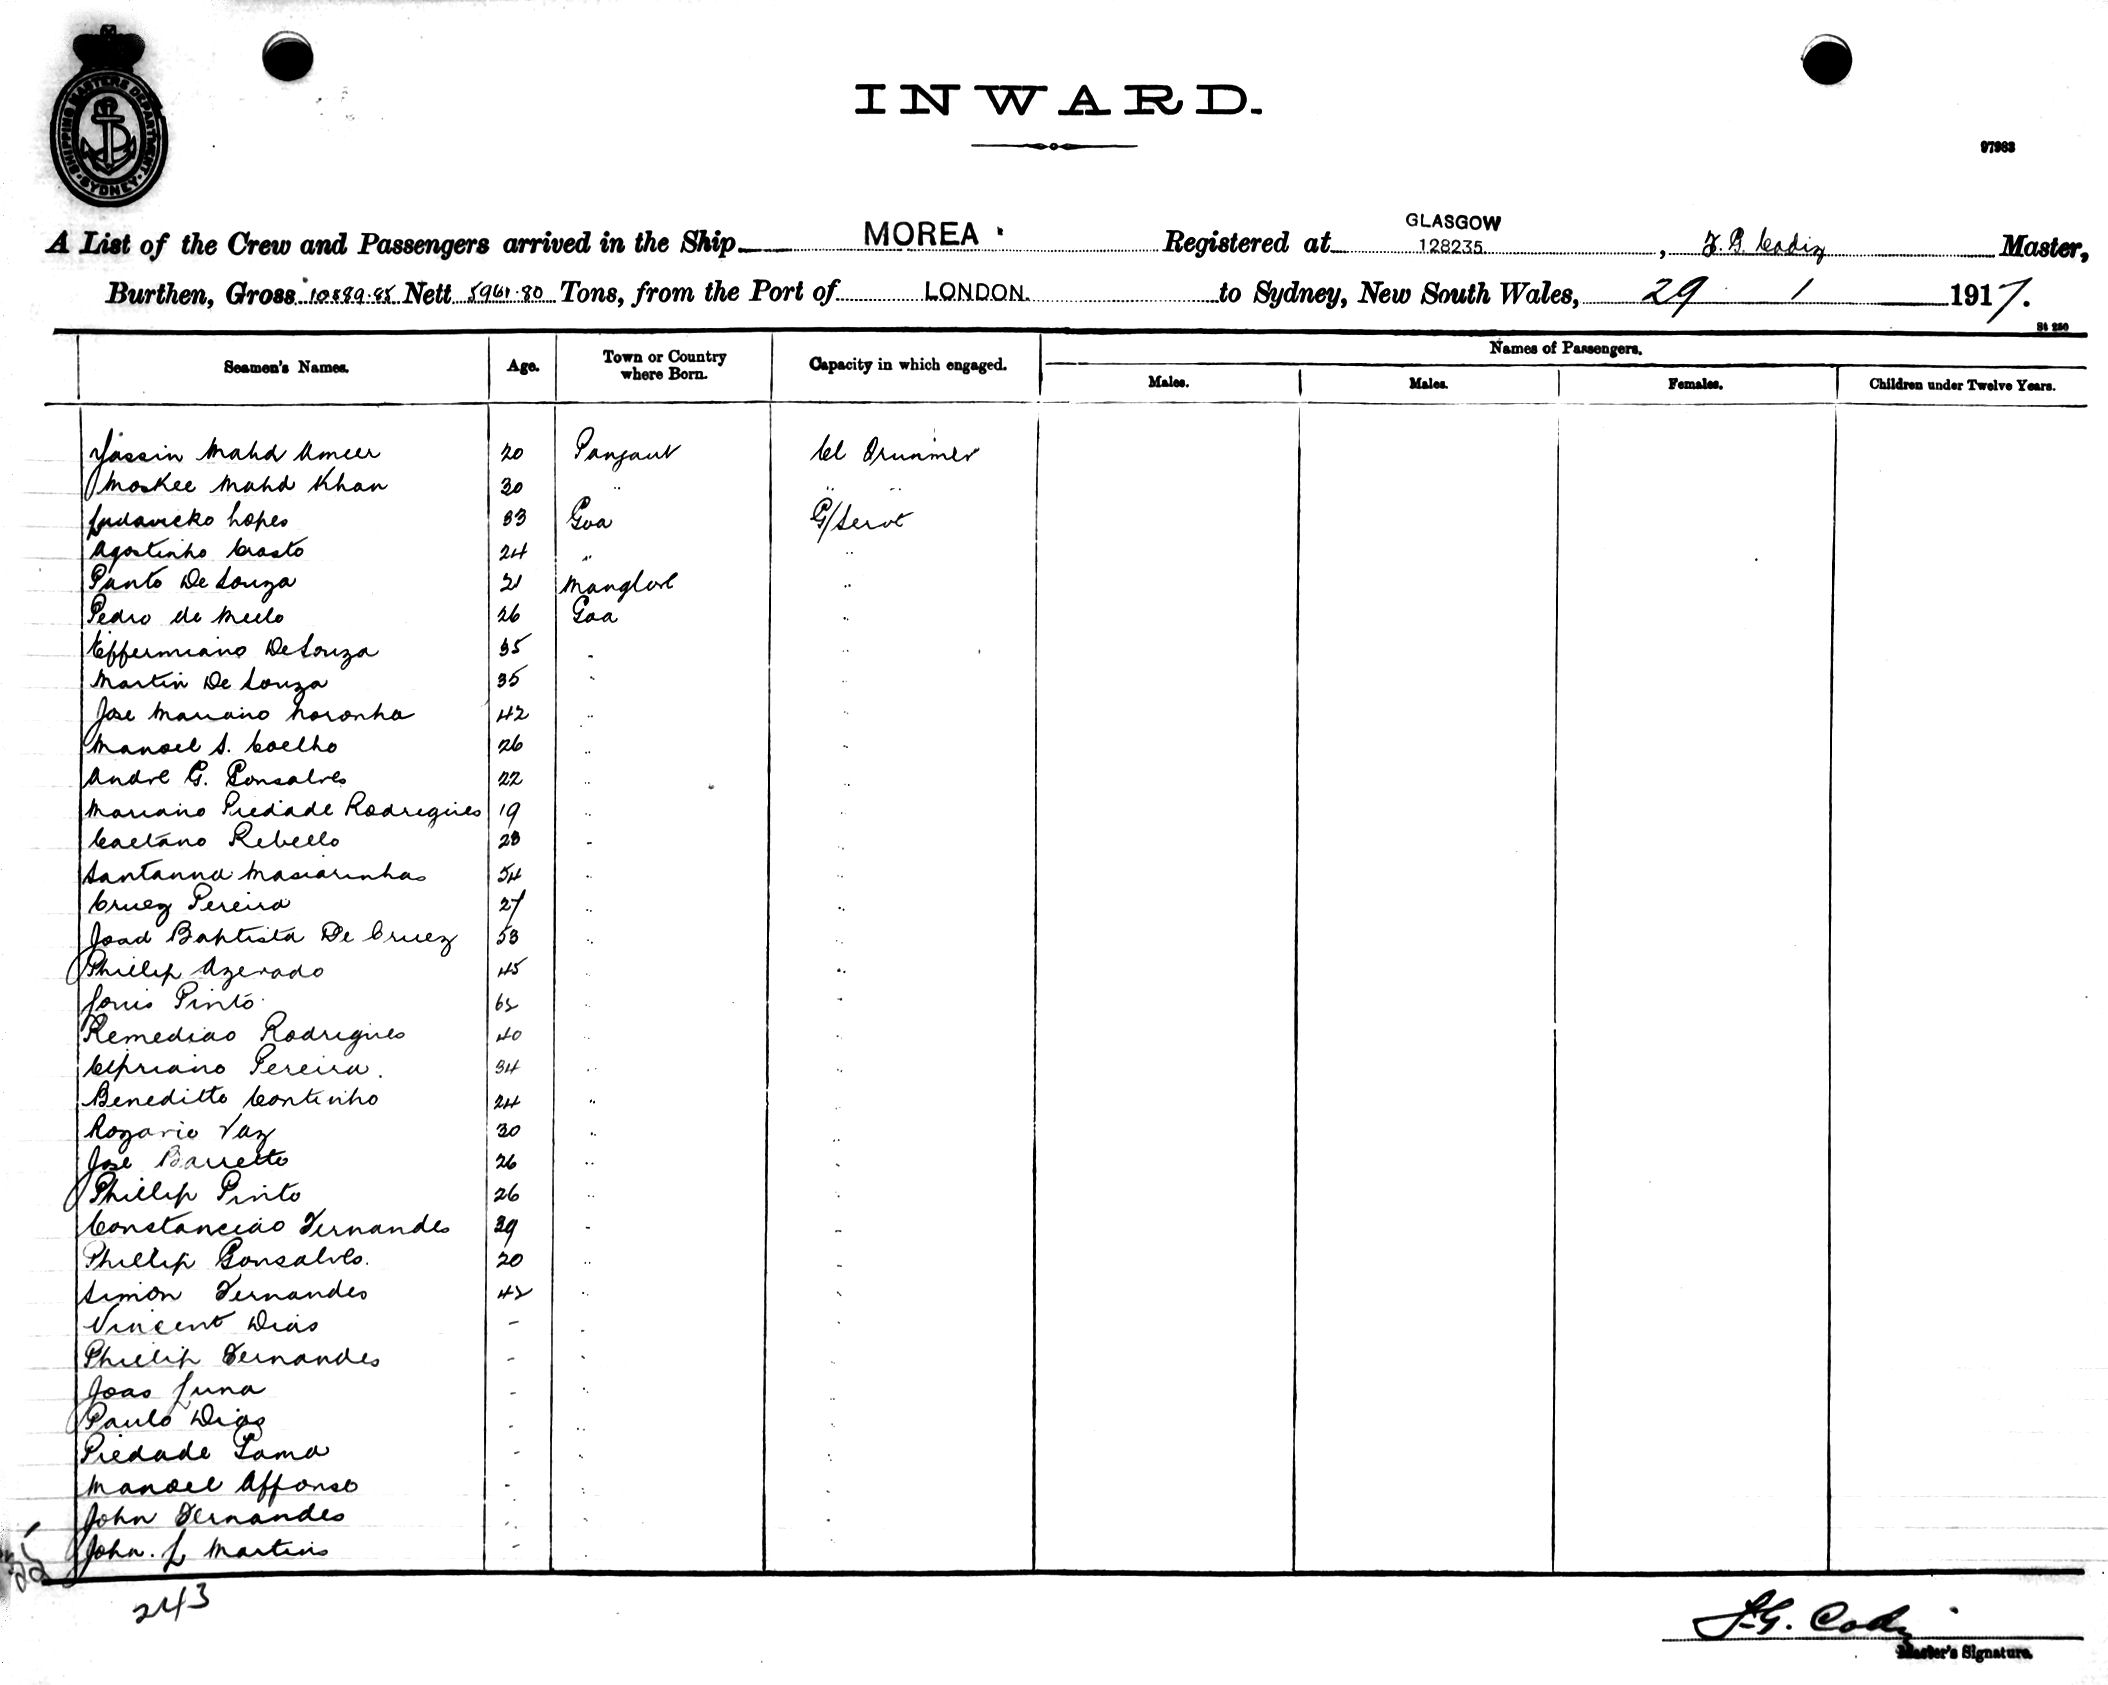 SHIPPING MASTERS DEPARTMENT SYDNEY
INWARD.
97983
A List of the Crew and Passengers arrived in the Ship MOREA Registered at GLASGOW 128235, Master,
Burthen, Gross Nett 5961.80 Tons, from the Port of LONDON. to Sydney, New South Wales, 29 1 1917.
St 250
Seamen's Names. Age. Town or Country where Born. Capacity in which engaged. Names of Passengers.
Males. Males. Females. Children under Twelve Years.
Yassin Mahd Ameer 20
Moskee Mahd Khan 30 " " "
Ludavicko Lopes 33 Goa G/Servt
Agostinho Crasto 24 " "
Panto De Souza 21 Manglore "
Pedro de Mello 26 Goa "
Effermiano De Souza 35 " "
Martin De Souza 35 " "
Jose Mariano Noronha 42 " "
Manoel S. Coelho 26 " "
Andre G. Gonsalves 22 " "
Mariano Piedade Rodrigues 19 " "
Caetano Rebello 28 " "
Santanna Masiarinhas 54 " "
Cruez Pereira 27 " "
Joad Baptista De Cruez 53 " "
Phillip Azevado 45 " "
Louis Pinto 62 " "
Remediao Rodrigues 40 " "
Cipriano Pereira. 34 " "
Beneditto Continho 24 " "
Rozario Vaz 30 " "
Jose Barretto 26 " "
Phillip Pinto 26 " "
Constanciao Fernandes 39 " "
Phillip Gonsalves. 20 " "
Simon Fernandes 42 " "
Vincent Dias - " "
Phillip Fernandes - " "
Joao Luna - " "
Paulo Dias - " "
Piedade Gama - " "
Manoel Affonso - " "
John Fernandes - " "
John. L Martins - " "
243
Master's Signature.